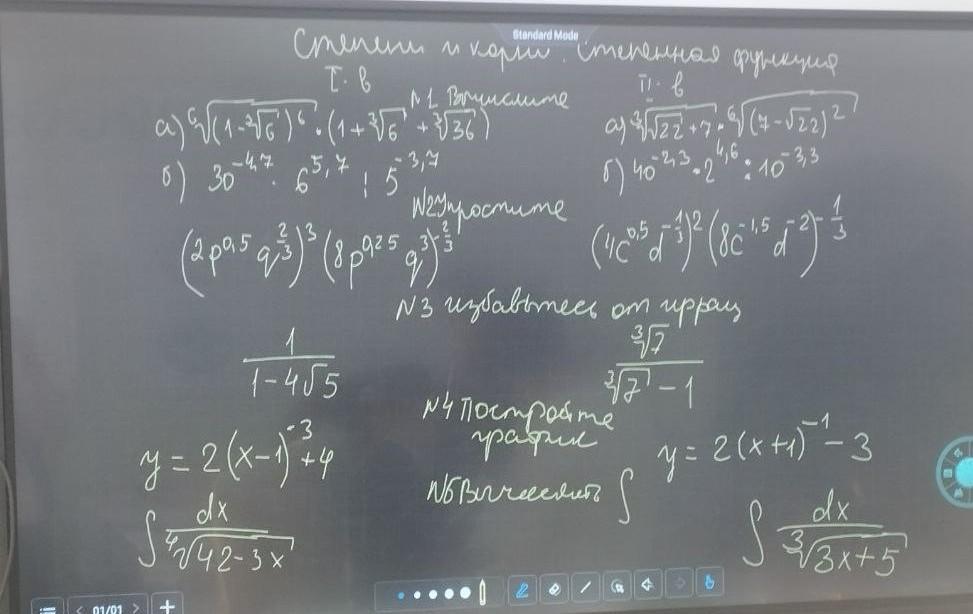 Standard Mode
Степени и корни. Степенная функция
I. в II. в
№1 Вычислите
а) ⁶√(1-³√6)⁶ · (1+³√6 + ³√36) а) ³√(√22+7) · ⁶√(7-√22)²
б) 30^-4,7 · 6^5,7 : 5^-3,7 б) 40^-2,3 · 2^4,6 : 10^-3,3
№2 Упростите
(2p^0,5 q^(2/3))^3 (8p^0,25 q^3)^(-2/3) (4c^0,5 d^(-1/3))^2 (8c^-1,5 d^-2)^(-1/3)
№3 избавьтесь от иррац
1/(1-4√5) ³√7/(³√7 - 1)
№4 Постройте
график
y = 2(x-1)^-3 + 4 y = 2(x+1)^-1 - 3
№5 Вычислить ∫
∫ dx/⁴√(42-3x) ∫ dx/³√(3x+5)
01/01